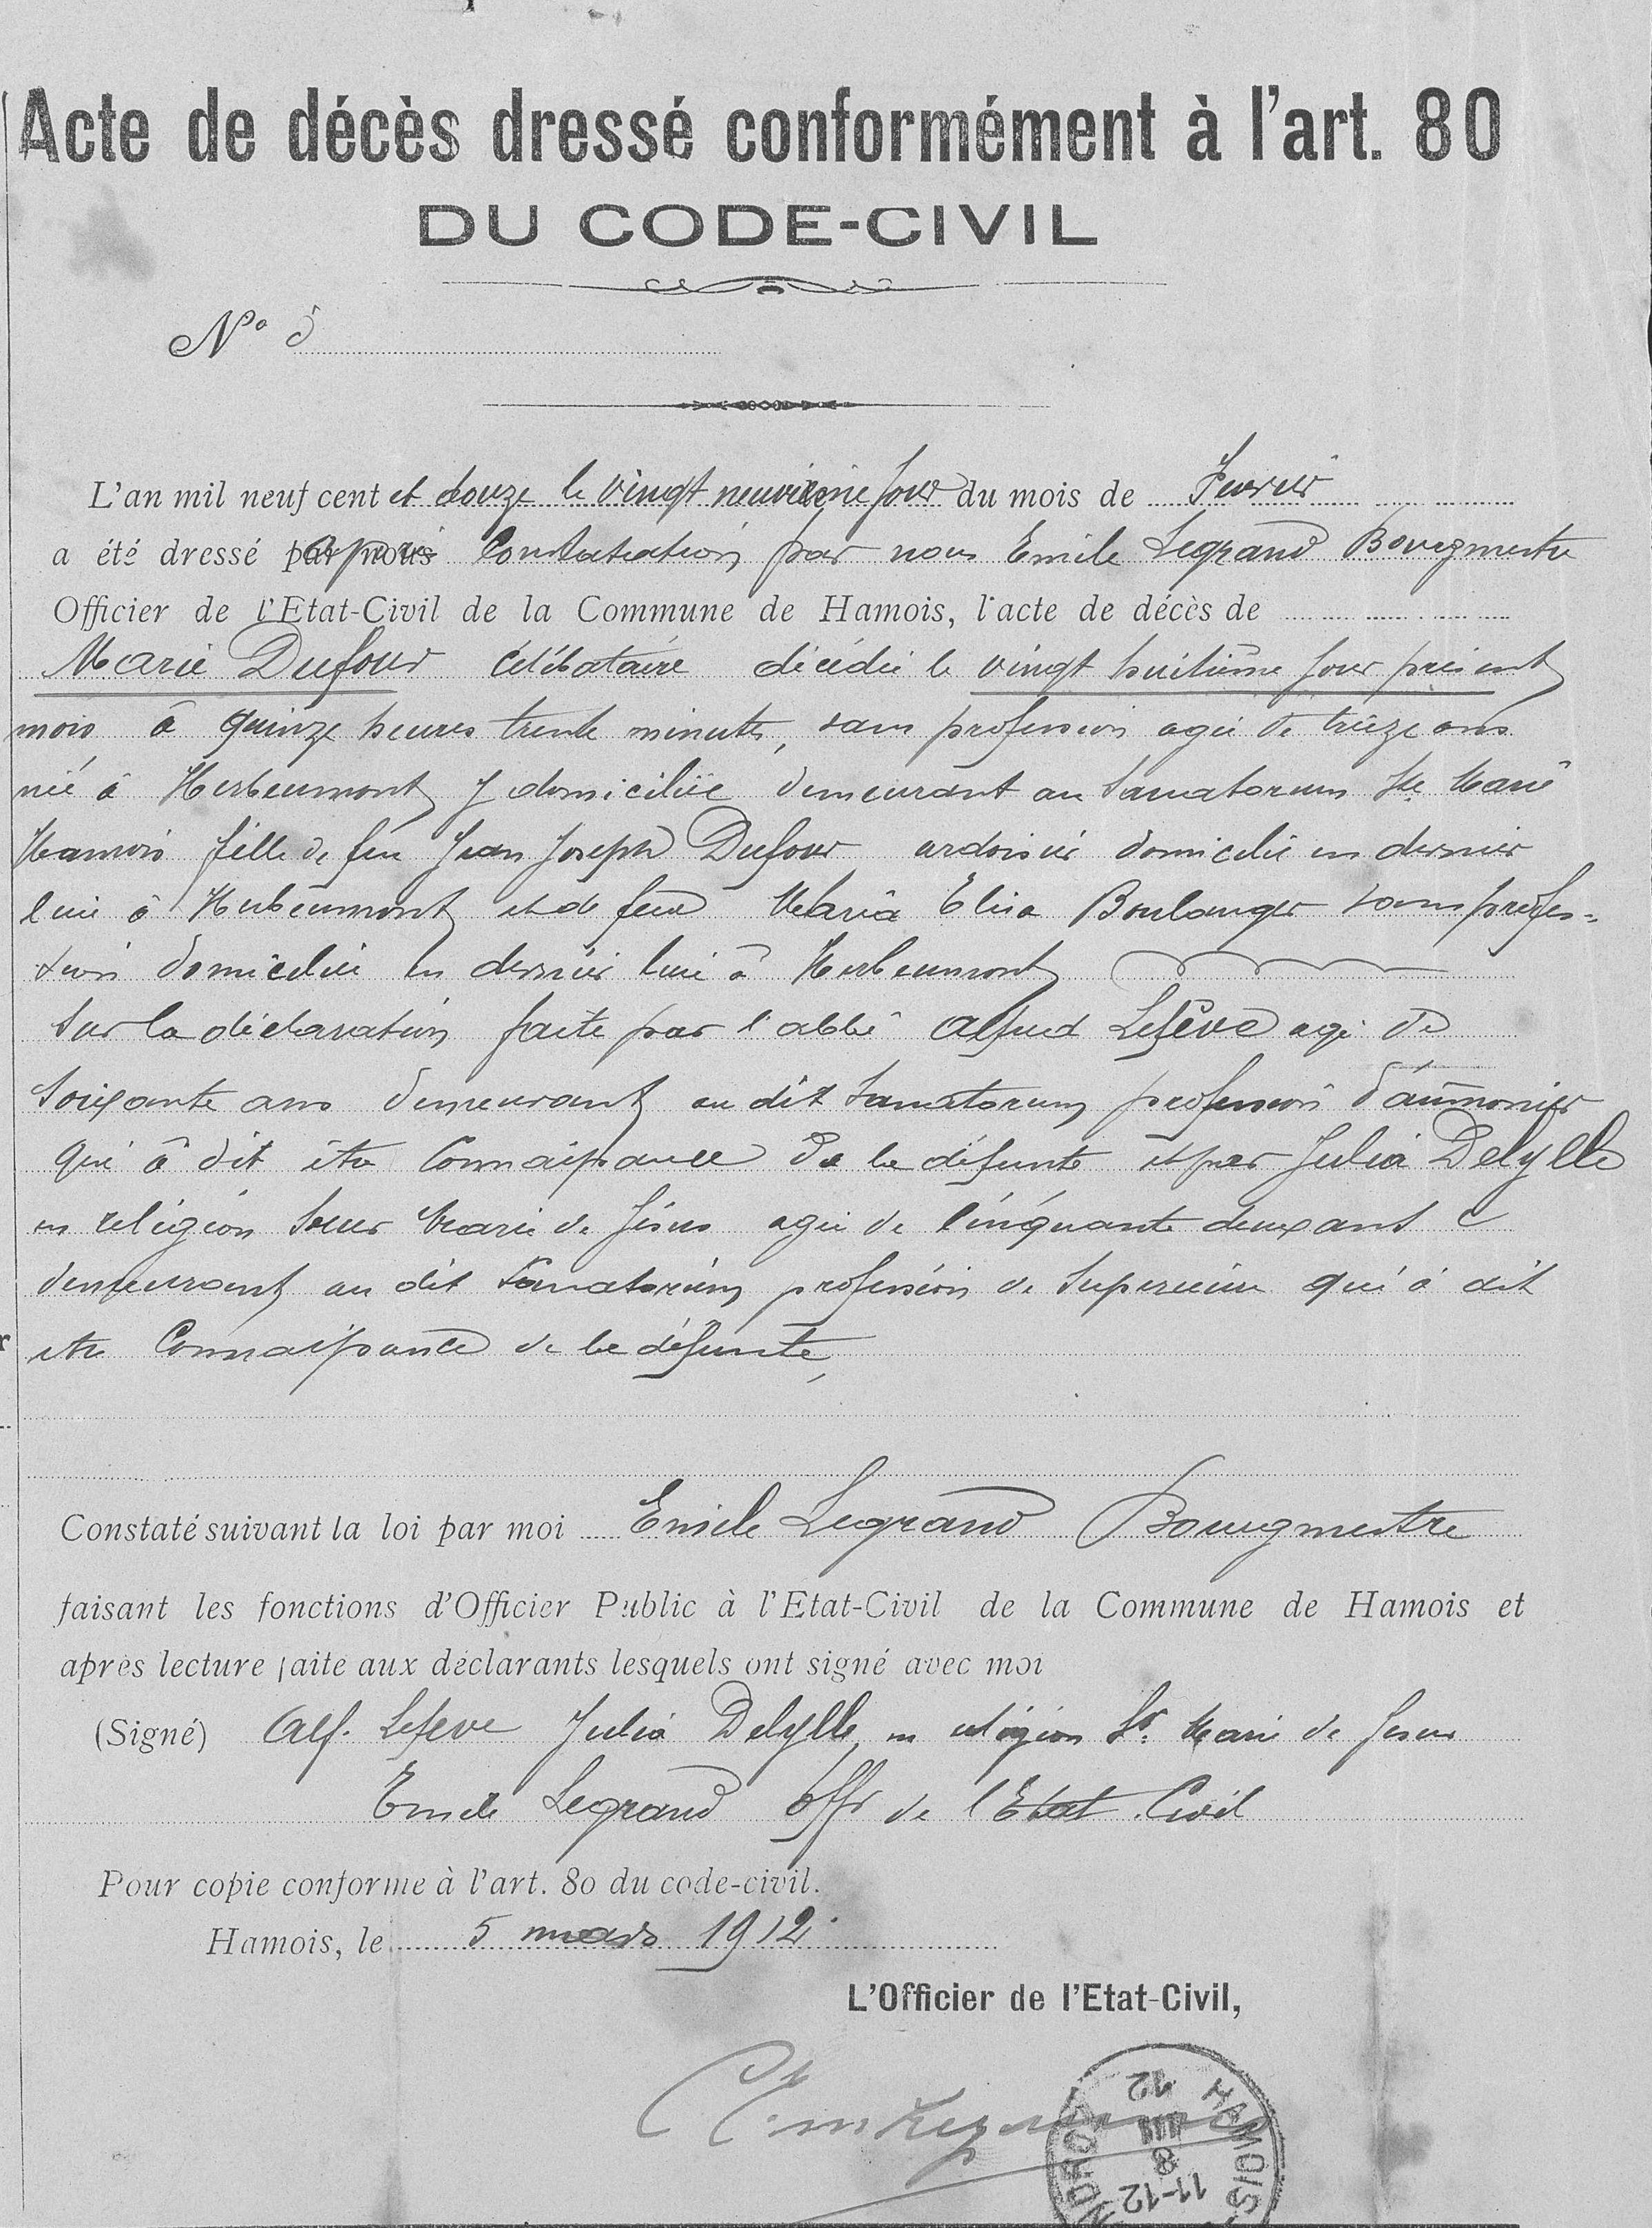 Acte de décès dressé conformément à l'art. 80
DU CODE-CIVIL
N° 5
L'an mil neuf cent et douze le vingt neuvième jour du mois de Fevrier
a été dressé par nous après Constatation par nous Emile Legrand Bourgmestre
Officier de l'Etat-Civil de la Commune de Hamois, l'acte de décès de
Marie Dufour Célébataire décédée le vingt huitième jour présent
mois à quinze heures trente minutes, sans profession agée de treize ans
née à Herbeumont y domiciliée demeurant au Sanatorium Ste Marie
Hamois fille de feu Jean Joseph Dufour ardoisier domicilié en dernier
lieu à Herbeumont et de feue Maria Elisa Boulanger sans profes=
sion domiciliée en dernier lieu à Herbeumont
Sur la déclaration faite par l'abbé Alfred Lefêve agé de
Soixante ans demeurant au dit Sanatorium profession d'aumonier
qui à dit être Connaissance de la défunte et par Julia Delylle
en religion Sœur Marie de Jésus agée de Cinquante deux ans
demeurant au dit Sanatorium profession de Superieure qui à dit
etre Connaissance de la défunte,
Constaté suivant la loi par moi Emile Legrand Bourgmestre
faisant les fonctions d'Officier Public à l'Etat-Civil de la Commune de Hamois et
après lecture faite aux déclarants lesquels ont signé avec moi
(Signé) Alf. Lefeve Julia Delylle, en religion Sr. Marie de Jesus
Emile Legrand Offr de l'Etat Civil
Pour copie conforme à l'art. 80 du code-civil.
Hamois, le 5 mars 1912
L'Officier de l'Etat-Civil,
HAMOIS
11-12
8
III
12